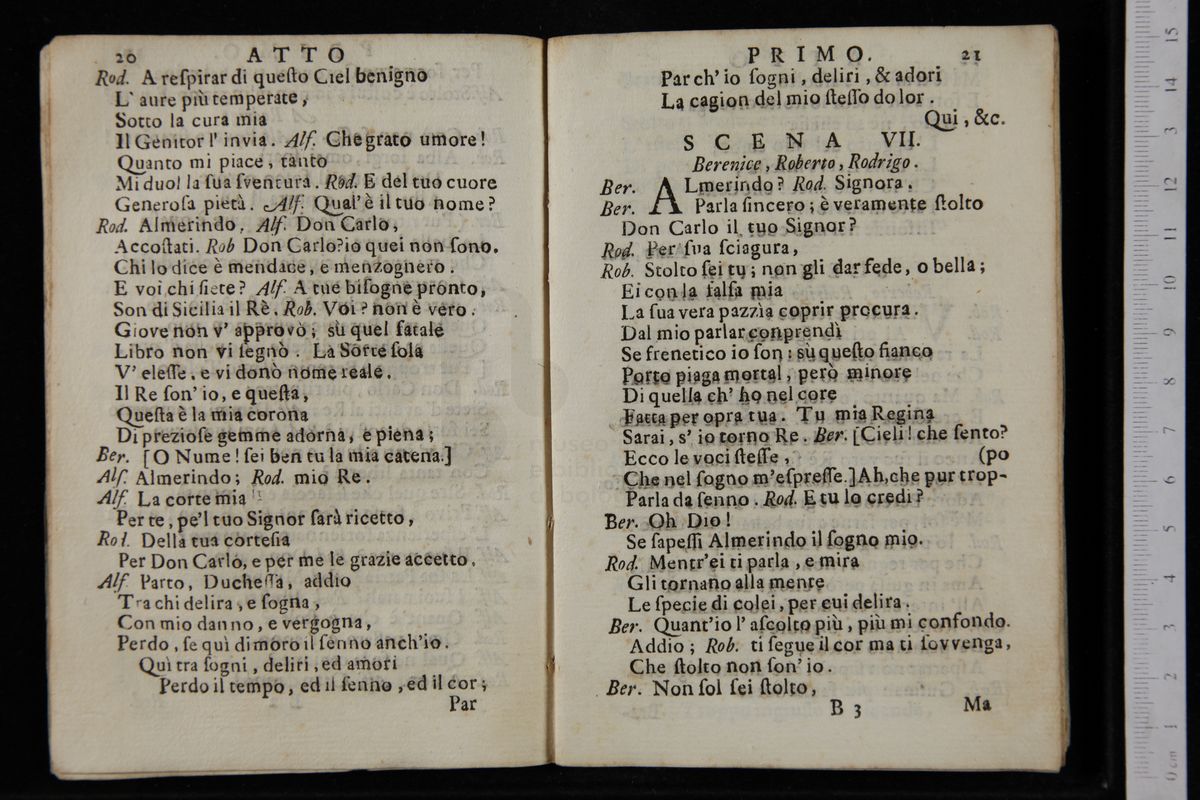 20 ATTO
Rod. A reſpirar di queſto Ciel benigno
L' aure più temperate,
Sotto la cura mia
Il Genitor l' invia. Alf. Che grato umore!
Quanto mi piace, tanto
Mi duol la ſua ſventura. Rod. E del tuo cuore
Generoſa pietà. Alf. Qual' è il tuo nome?
Rod. Almerindo. Alf. Don Carlo,
Accoſtati. Rob Don Carlo? io quei non ſono.
Chi lo dice è mendace, e menzognero.
E voi chi ſiete? Alf. A tue biſogne pronto,
Son di Sicilia il Rè. Rob. Voi? non è vero.
Giove non v' approvò; sù quel fatale
Libro non vi ſegnò. La Sorte ſola
V' eleſſe, e vi donò nome reale.
Il Re ſon' io, e queſta,
Queſta è la mia corona
Di prezioſe gemme adorna, e piena;
Ber. [O Nume! ſei ben tu la mia catena.]
Alf. Almerindo; Rod. mio Re.
Alf. La corte mia
Per te, pe'l tuo Signor ſarà ricetto,
Rod. Della tua corteſia
Per Don Carlo, e per me le grazie accetto.
Alf. Parto, Ducheſſa, addio
Tra chi delira, e ſogna,
Con mio danno, e vergogna,
Perdo, ſe quì dimoro il ſenno anch'io.
Quì tra ſogni, deliri, ed amori
Perdo il tempo, ed il ſenno, ed il cor;
Par
PRIMO. 21
Par ch' io ſogni, deliri, & adori
La cagion del mio ſteſſo dolor.
Qui, &c.
SCENA VII.
Berenice, Roberto, Rodrigo.
Ber. ALmerindo? Rod. Signora.
Ber. Parla ſincero; è veramente ſtolto
Don Carlo il tuo Signor?
Rod. Per ſua ſciagura,
Rob. Stolto ſei tu; non gli dar fede, o bella;
Ei con la falſa mia
La ſua vera pazzìa coprir procura.
Dal mio parlar conprendì
Se frenetico io ſon: sù queſto fianco
Porto piaga mortal, però minore
Di quella ch' ho nel core
Fatta per opra tua. Tu mia Regina
Sarai, s' io torno Re. Ber. [Cieli! che ſento?
Ecco le voci ſteſſe, (po
Che nel ſogno m'eſpreſſe.] Ah, che pur trop-
Parla da ſenno. Rod. E tu lo credi?
Ber. Oh Dio!
Se ſapeſſi Almerindo il ſogno mio.
Rod. Mentr'ei ti parla, e mira
Gli tornano alla mente
Le ſpecie di colei, per cui delira.
Ber. Quant'io l' aſcolto più, più mi confondo.
Addio; Rob. ti ſegue il cor ma ti ſovvenga,
Che ſtolto non ſon' io.
Ber. Non ſol ſei ſtolto,
B 3 Ma